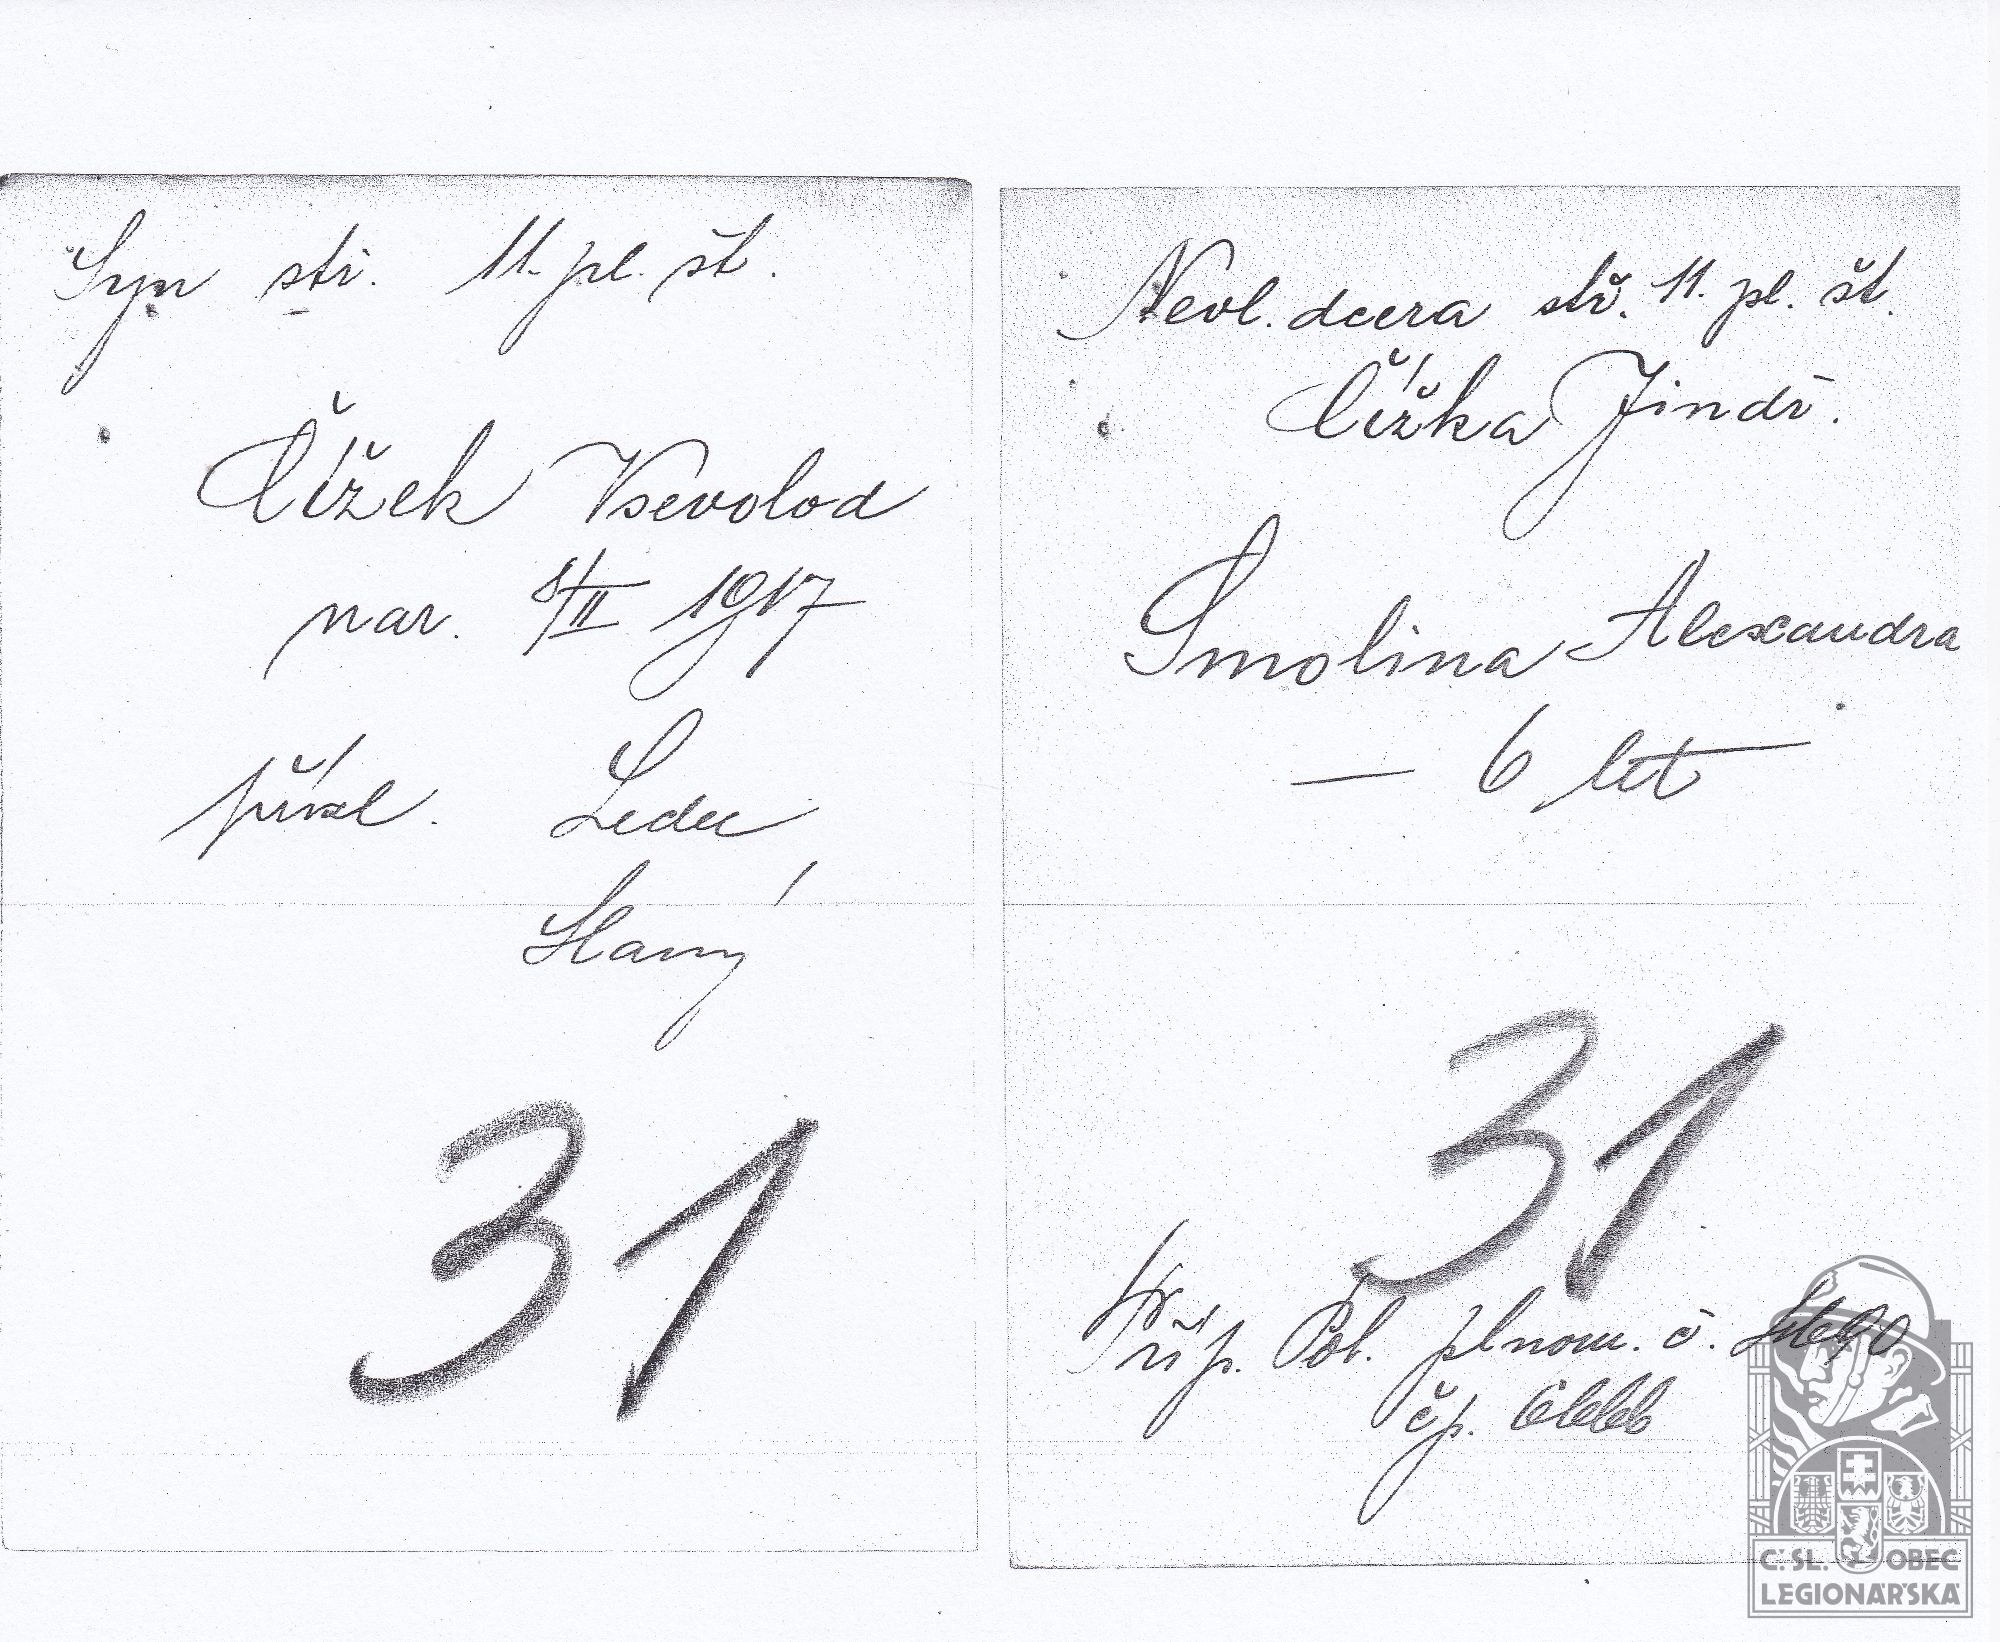 Syn stř. 11. pl. št.
Čížek Vsevolod
nar. 8/II 1917
přísl. Ledec
Starý
31
Nevl. dcera stř. 11. pl. št.
Čížka Jindř.
Smolina Alexandra
— 6 let —
31
Příp. Pol. plnom. č.
čp.
Č. SL. OBEC
LEGIONÁŘSKÁ